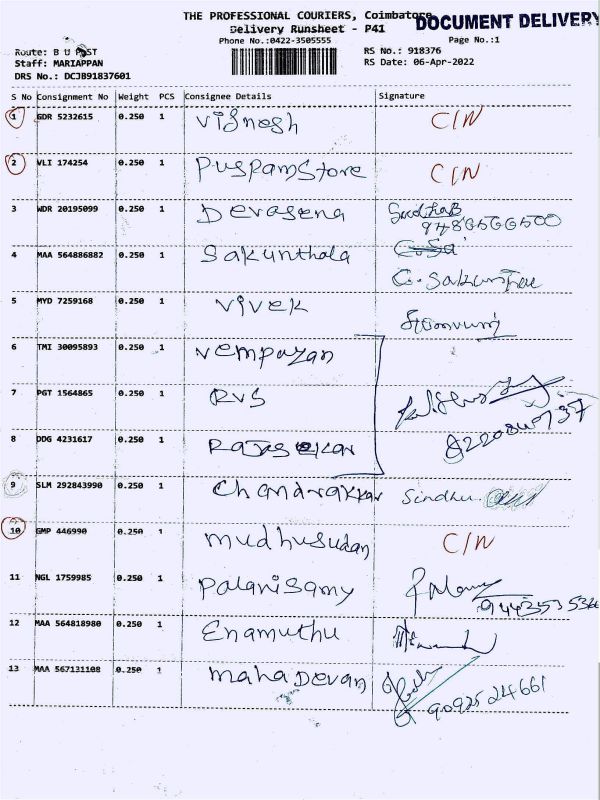 THE PROFESSIONAL COURIERS, Coimbatore
DOCUMENT DELIVERY
Delivery Runsheet - P41
Phone No.:0422-3505555
Page No.:1
Route: B U POST
RS No.: 918376
Staff: MARIAPPAN
RS Date: 06-Apr-2022
DRS No.: DCJB91837601
S No Consignment No Weight PCS Consignee Details Signature
1 GDR 5232615 0.250 1 Vignesh C/N
2 VLI 174254 0.250 1 Puspam Store C/N
3 WDR 20195099 0.250 1 Devasena
9486566500
4 MAA 564886882 0.250 1 Sakunthala
5 MYD 7259168 0.250 1 Vivek
6 TMI 30095893 0.250 1 Vempazan
7 PGT 1564865 0.250 1 RVS
8 DDG 4231617 0.250 1 Rajasekar
9 SLM 292843990 0.250 1 Chandrakkar Sindhu
10 GMP 446990 0.250 1 Mudhusudan C/N
11 NGL 1759985 0.250 1 Palanisamy
12 MAA 564818980 0.250 1 Enamuthu
13 MAA 567131108 0.250 1 Mahadevan
9092524661